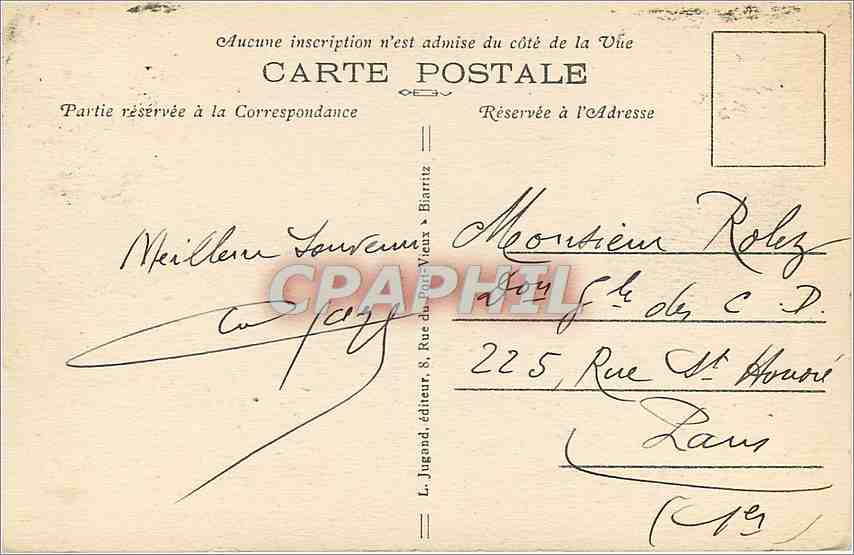 Aucune inscription n'est admise du côté de la Vue
CARTE POSTALE
Partie réservée à la Correspondance
Réservée à l'Adresse
Meilleur Souvenir
L. Jugand, éditeur, 8, Rue du Port-Vieux - Biarritz
CPAPHIL
Monsieur Rolez
Don Gle des C. D.
225, Rue St Honoré
Paris
(1er)